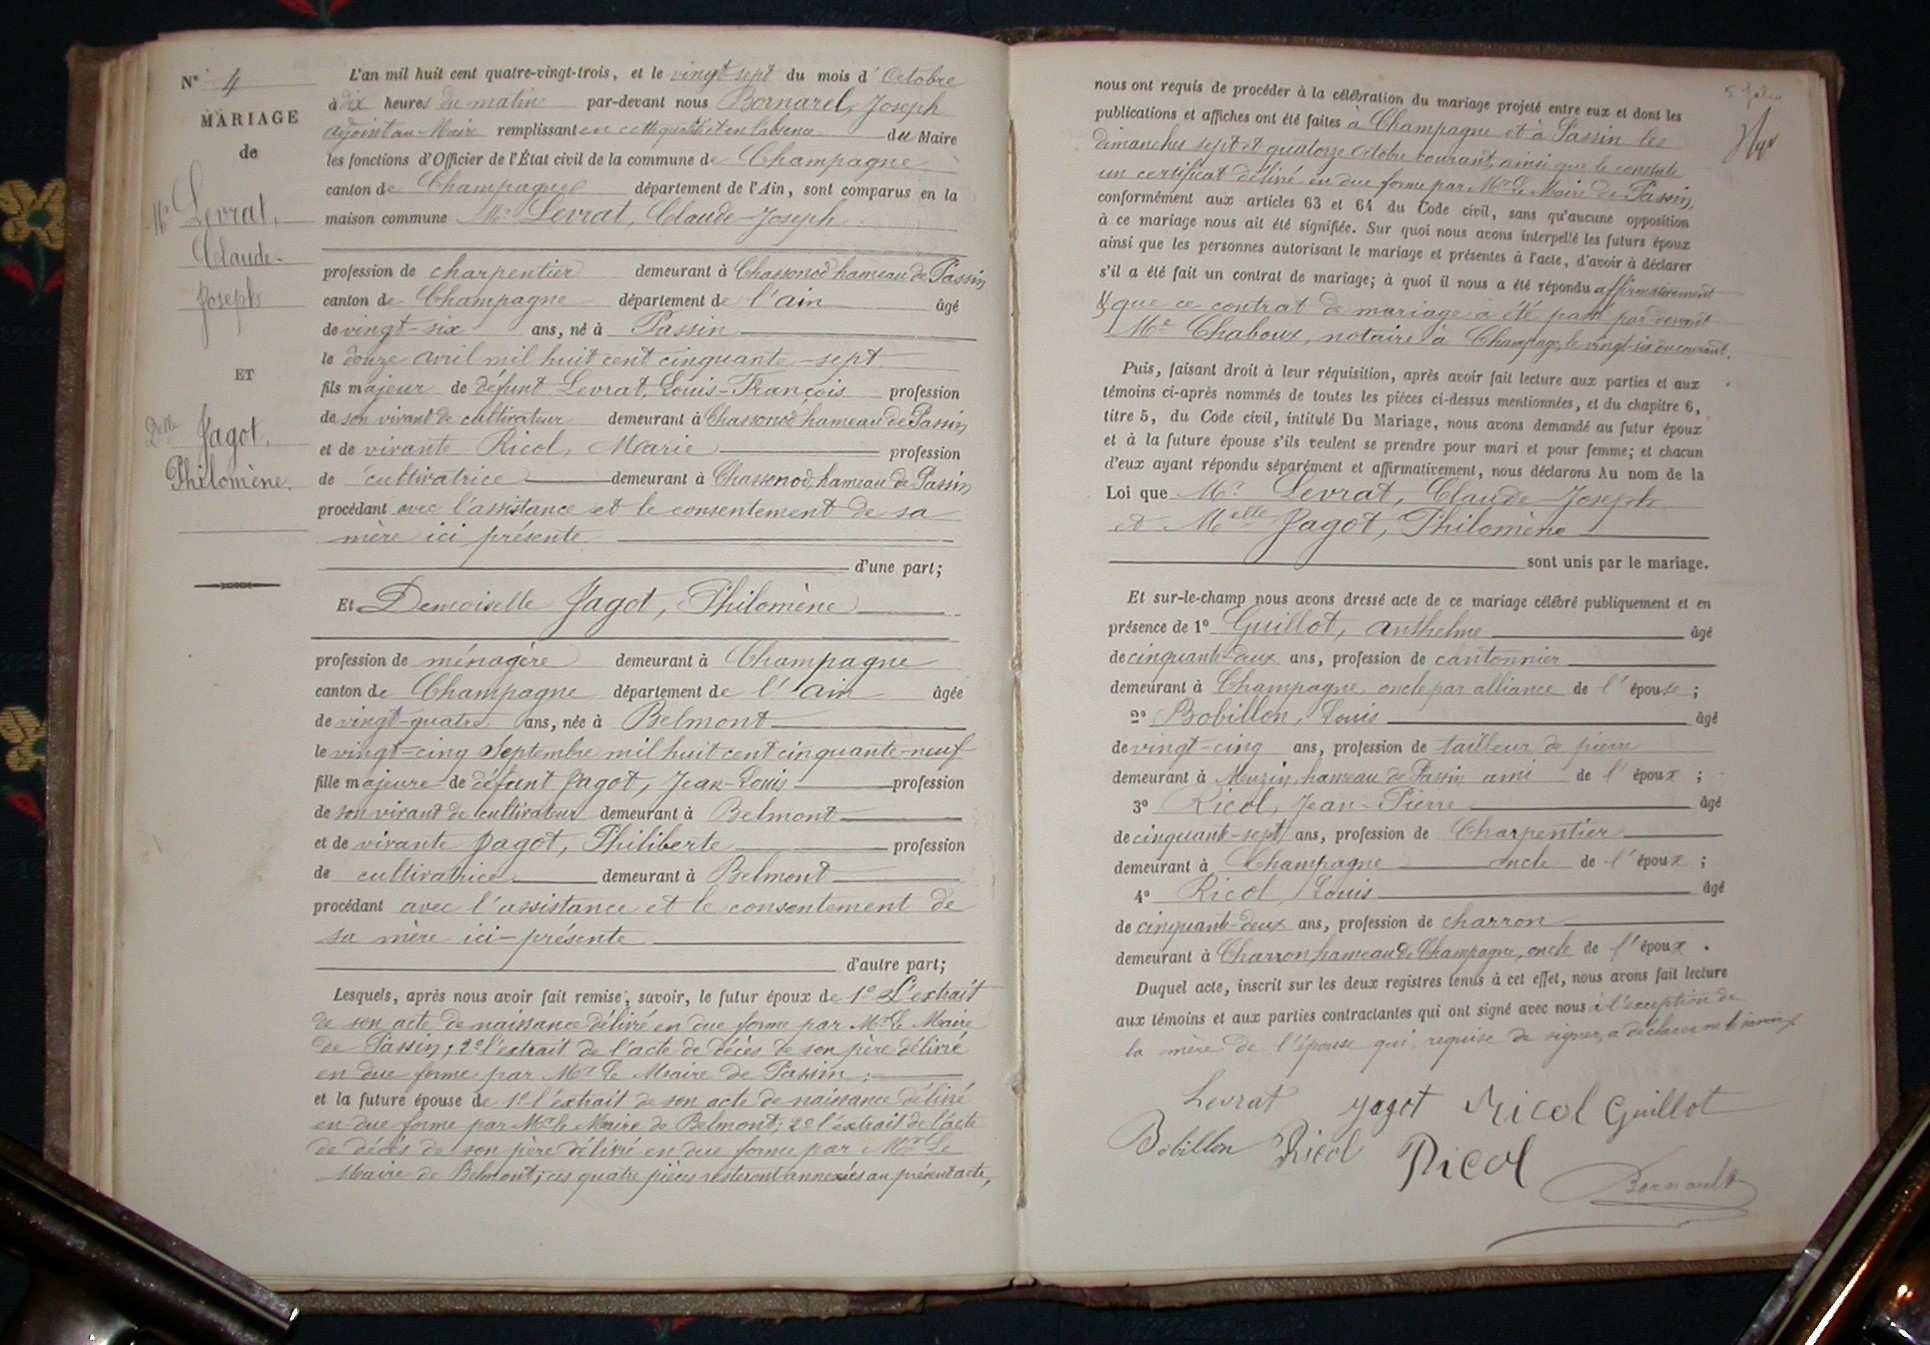 N° 4
MARIAGE
de
Mr Levrat,
Claude-
Joseph
ET
Delle Jagot,
Philomène.
L'an mil huit cent quatre-vingt-trois, et le vingt sept du mois d'Octobre
à dix heures du matin par-devant nous Bornarel, Joseph
adjoint au Maire remplissant en cette qualité et en l'absence du Maire
les fonctions d'Officier de l'État civil de la commune de Champagne
canton de Champagne département de l'Ain, sont comparus en la
maison commune Mr Levrat, Claude-Joseph
profession de charpentier demeurant à Chassonod hameau de Passin
canton de Champagne département de l'ain âgé
de vingt-six ans, né à Passin
le douze avril mil huit cent cinquante-sept
fils majeur de défunt Levrat, Louis-François profession
de son vivant de cultivateur demeurant à Chassonod hameau de Passin
et de vivante Ricol, Marie profession
de cultivatrice demeurant à Chassonod, hameau de Passin
procédant avec l'assistance et le consentement de sa
mère ici présente
d'une part;
Et Demoiselle Jagot, Philomène
profession de ménagère demeurant à Champagne
canton de Champagne département de l'ain âgée
de vingt-quatre ans, née à Belmont
le vingt-cinq Septembre mil huit cent cinquante-neuf
fille majeure de défunt Jagot, Jean-Louis profession
de son vivant de cultivateur demeurant à Belmont
et de vivante Jagot, Philiberte profession
de cultivatrice demeurant à Belmont
procédant avec l'assistance et le consentement de
sa mère ici-présente
d'autre part;
Lesquels, après nous avoir fait remise, savoir, le futur époux de 1° L'extrait
de son acte de naissance délivré en due forme par Mr le Maire
de Passin; 2° l'extrait de l'acte de décès de son père délivré
en due forme par Mr le Maire de Passin;
et la future épouse de 1° l'extrait de son acte de naissance délivré
en due forme par Mr le Maire de Belmont; 2° l'extrait de l'acte
de décès de son père délivré en due forme par Mr Le
Maire de Belmont; ces quatre pièces resteront annexées au présent acte,
nous ont requis de procéder à la célébration du mariage projeté entre eux et dont les
publications et affiches ont été faites à Champagne et à Passin les
dimanches sept et quatorze octobre courant, ainsi que le constate
un certificat délivré en due forme par Mr le Maire de Passin,
conformément aux articles 63 et 64 du Code civil, sans qu'aucune opposition
à ce mariage nous ait été signifiée. Sur quoi nous avons interpellé les futurs époux
ainsi que les personnes autorisant le mariage et présentes à l'acte, d'avoir à déclarer
s'il a été fait un contrat de mariage; à quoi il nous a été répondu affirmativement
& que ce contrat de mariage a été passé par-devant
Me Chaboux, notaire à Champagne, le vingt-six du courant.
Puis, faisant droit à leur réquisition, après avoir fait lecture aux parties et aux
témoins ci-après nommés de toutes les pièces ci-dessus mentionnées, et du chapitre 6,
titre 5, du Code civil, intitulé Du Mariage, nous avons demandé au futur époux
et à la future épouse s'ils veulent se prendre pour mari et pour femme; et chacun
d'eux ayant répondu séparément et affirmativement, nous déclarons Au nom de la
Loi que Mr. Levrat, Claude-Joseph
et Melle Jagot, Philomène
sont unis par le mariage.
Et sur-le-champ nous avons dressé acte de ce mariage célébré publiquement et en
présence de 1° Guillot, anthelme âgé
de cinquante-deux ans, profession de cantonnier
demeurant à Champagne, oncle par alliance de l'épouse;
2° Bobillon, Louis âgé
de vingt-cinq ans, profession de tailleur de pierre
demeurant à Muzin, hameau de Passin ami de l'époux;
3° Ricol, Jean-Pierre âgé
de cinquante-sept ans, profession de Charpentier
demeurant à Champagne oncle de l'époux;
4° Ricol, Louis âgé
de cinquante-deux ans, profession de charron
demeurant à Charron, hameau de Champagne, oncle de l'époux.
Duquel acte, inscrit sur les deux registres tenus à cet effet, nous avons fait lecture
aux témoins et aux parties contractantes qui ont signé avec nous à l'exception de
la mère de l'épouse qui, requise de signer, a déclaré ne le savoir
Levrat Jagot Ricol Guillot
Bobillon Ricol Ricol